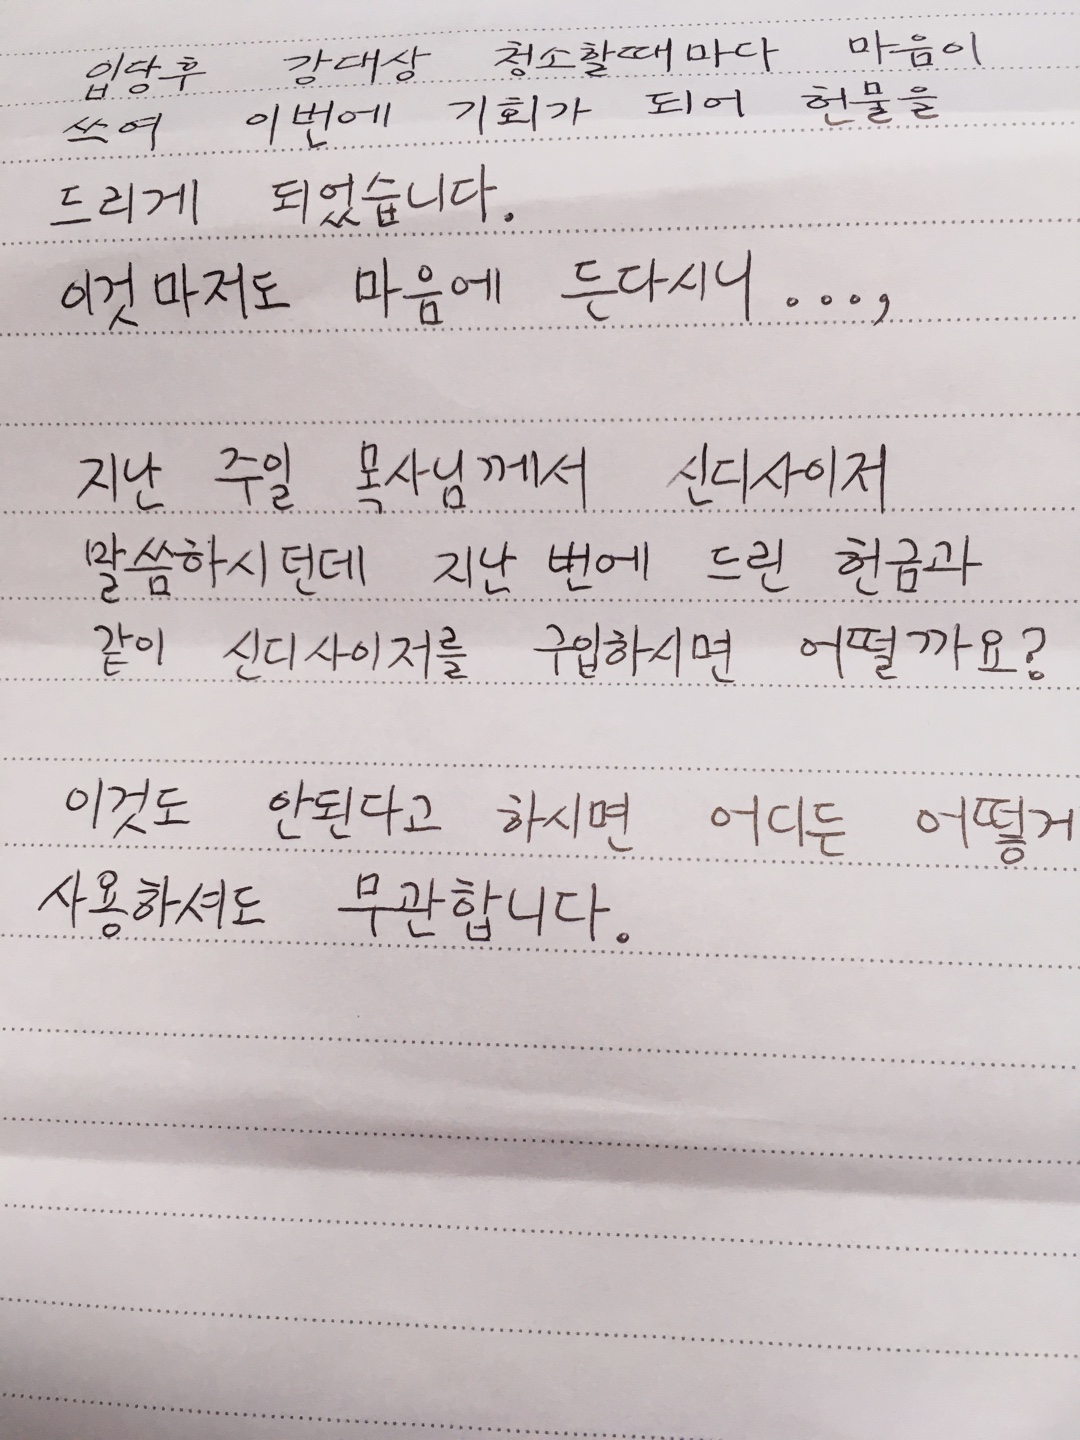 입당후 강대상 청소할때마다 마음이
쓰여 이번에 기회가 되어 헌물을
드리게 되었습니다.
이것마저도 마음에 든다시니 ...,
지난 주일 목사님께서 신디사이저
말씀하시던데 지난번에 드린 헌금과
같이 신디사이저를 구입하시면 어떨까요?
이것도 안된다고 하시면 어디든 어떻게
사용하셔도 무관합니다.